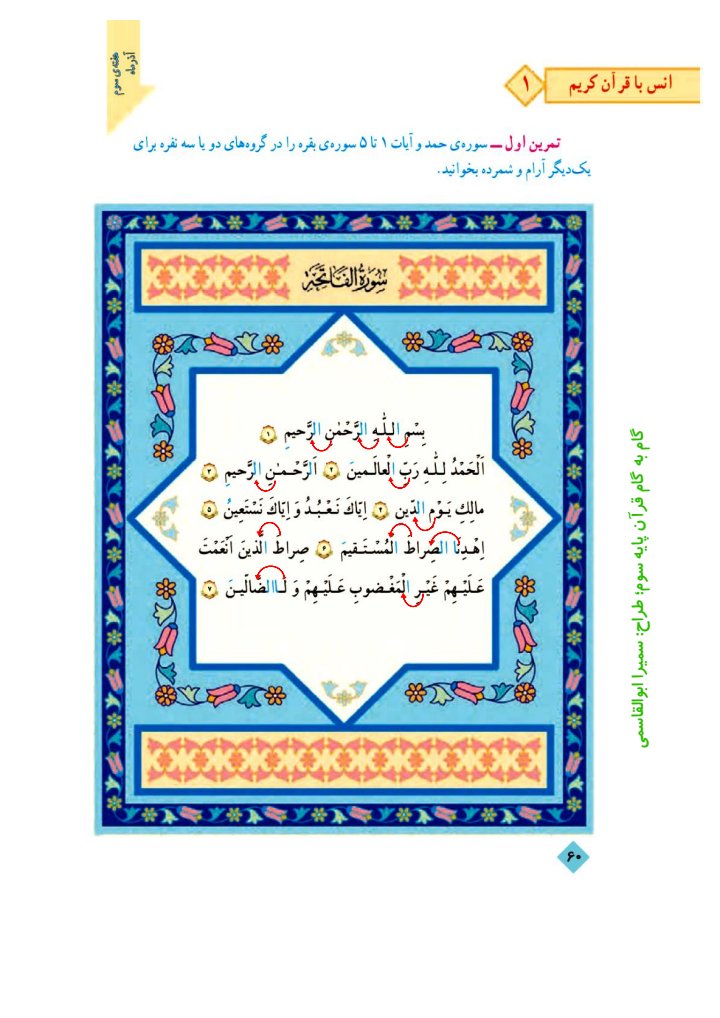 هفته‌ی سوم
آذرماه
انس با قرآن کریم
۱
تمرین اول ــ سوره‌ی حمد و آیات ۱ تا ۵ سوره‌ی بقره را در گروه‌های دو یا سه نفره برای
یک‌دیگر آرام و شمرده بخوانید.
سُورَةُ الفَاتِحَة
بِسْمِ اللّٰهِ الرَّحْمٰنِ الرَّحیمِ ۱
اَلْحَمْدُ لِلّٰهِ رَبِّ الْعالَمینَ ۲ اَلرَّحْمٰنِ الرَّحیمِ ۳
مالِكِ یَوْمِ الدّینِ ۴ اِیّاكَ نَعْبُدُ وَ اِیّاكَ نَسْتَعینُ ۵
اِهْدِنَا الصِّراطَ الْمُسْتَقیمَ ۶ صِراطَ الَّذینَ اَنْعَمْتَ
عَلَیْهِمْ غَیْرِ الْمَغْضوبِ عَلَیْهِمْ وَ لَاالضّالّینَ ۷
گام به گام قرآن پایه سوم؛ طراح: سمیرا ابوالقاسمی
۶۰